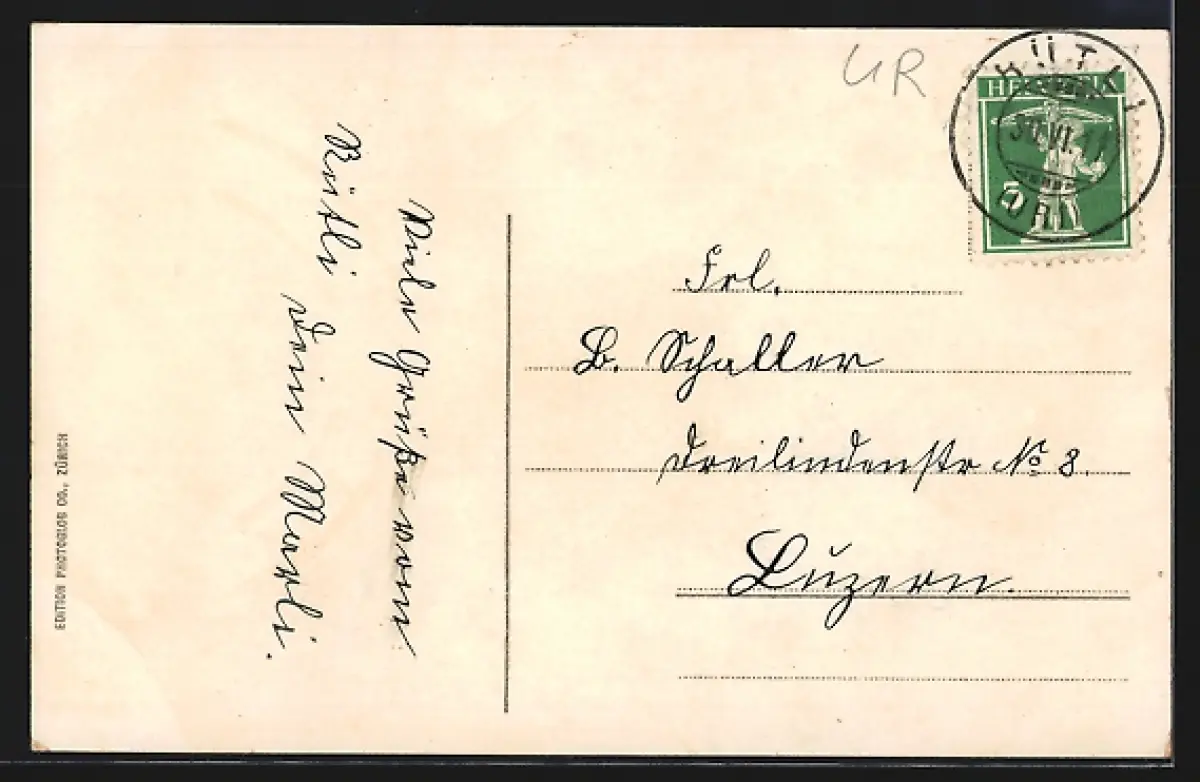 UR
RÜTLI
HELVETIA
30.VI.11
5
URI
Viele Grüße vom
Rütli dein Marli.
Frl.
B. Schaller
Dreilindenstr No 8.
Luzern.
EDITION PHOTOGLOB CO., ZÜRICH